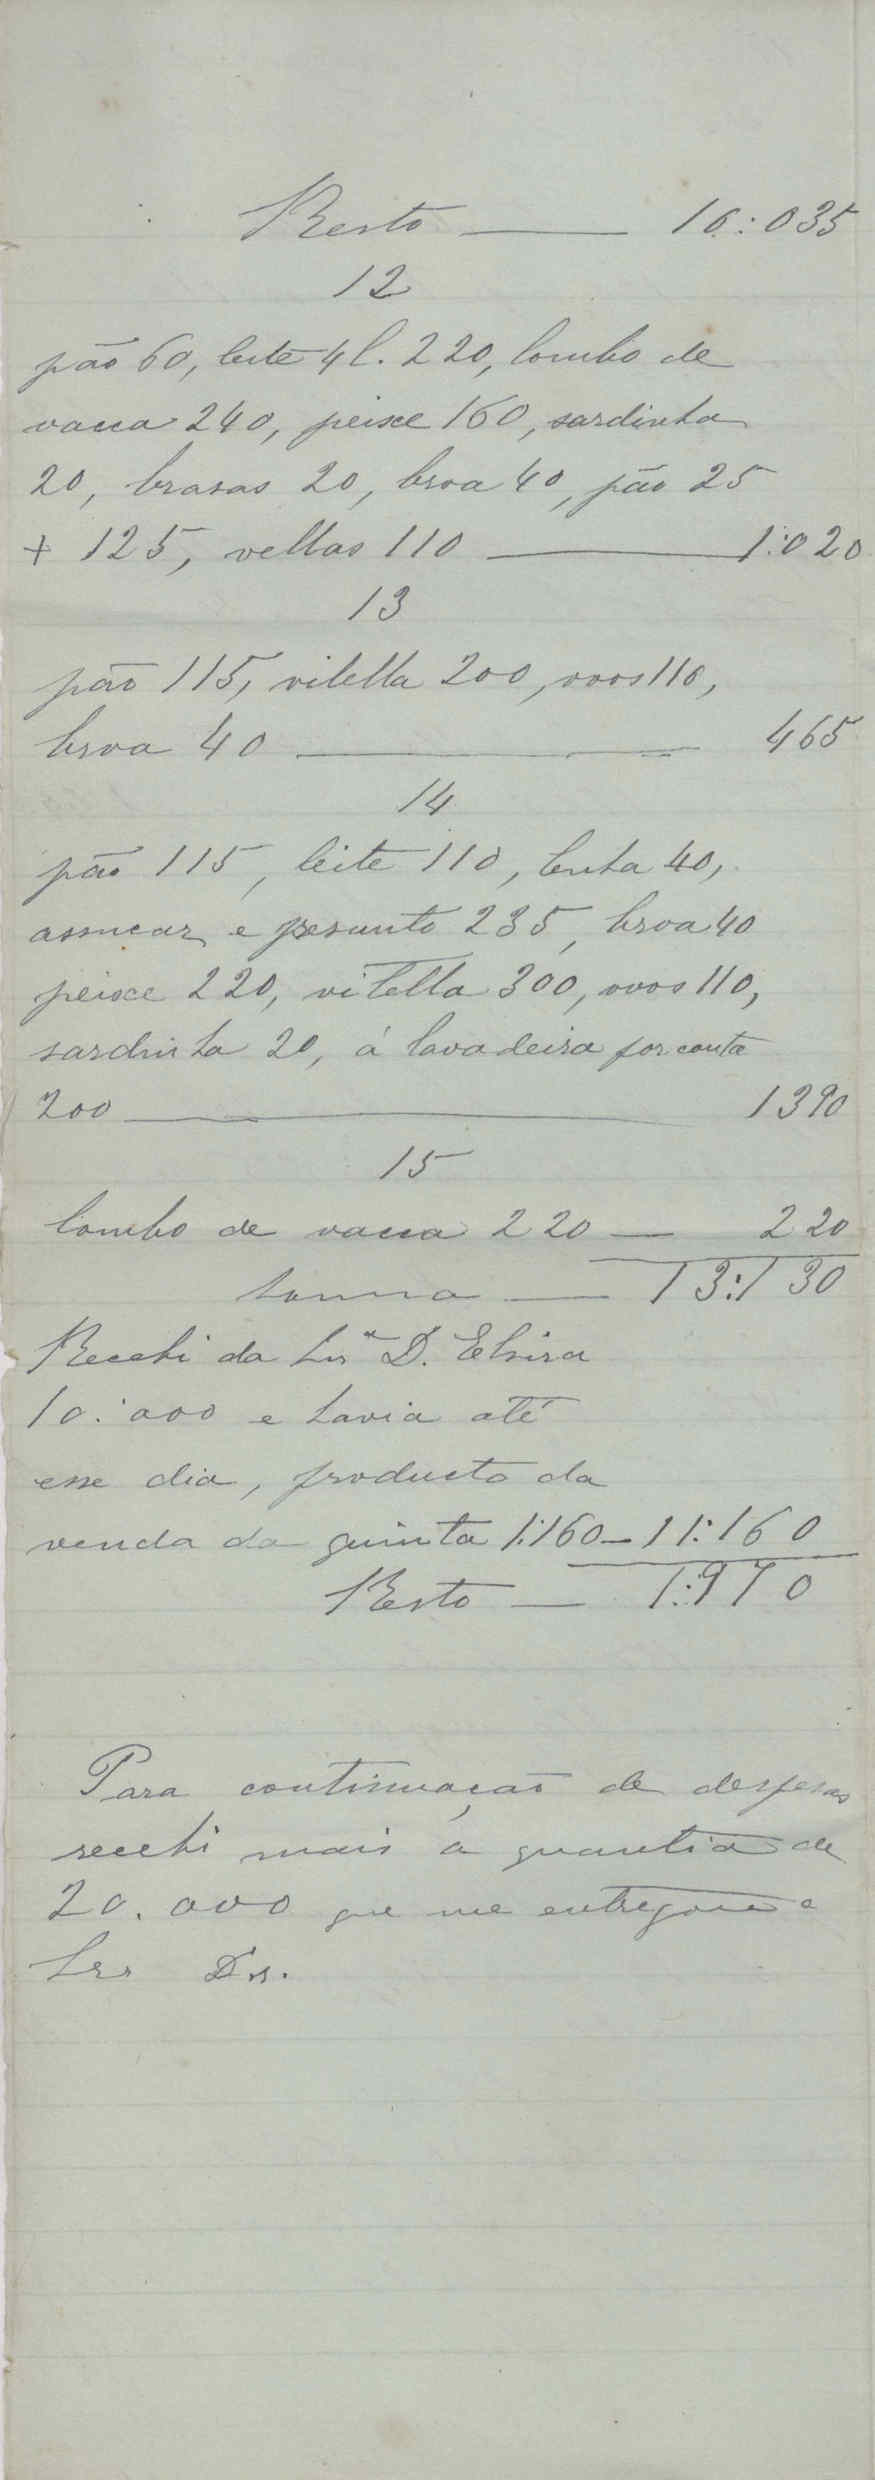 Resto — 10:035
12
pão 60, leite 4 l. 220, lombo de
vacca 240, peixe 160, sardinha
20, brasas 20, broa 40, pão 25
+ 125, vellas 110 — 1:020
13
pão 115, vitella 200, ovos 110,
broa 40 — 465
14
pão 115, leite 110, lenha 40,
assucar e presunto 235, broa 40
peixe 220, vitella 300, ovos 110,
sardinha 20, á lavadeira por conta
200 — 1390
15
lombo de vacca 220 — 220
somma — 13:130
Recebi da Snrª D. Elvira
10:000 e havia até
esse dia, producto da
venda da quinta 1:160 – 11:160
Resto — 1:970
Para continuação de despesas
recebi mais a quantia de
20.000 que me entregou o
Snr Dr.